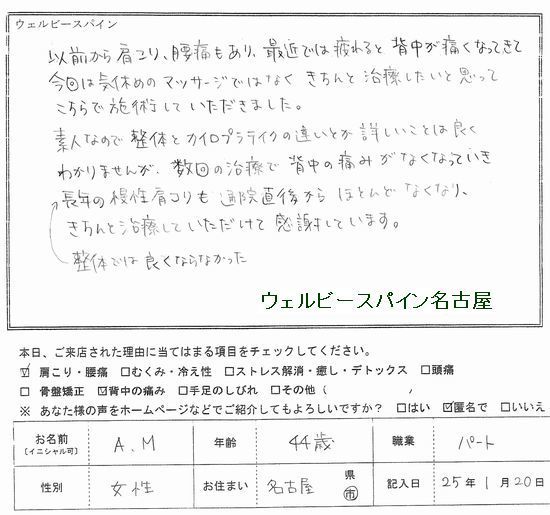 ウェルビースパイン
以前から肩こり、腰痛もあり、最近では疲れると背中が痛くなってきて
今回は気休めのマッサージではなく きちんと治療したいと思って
こちらで施術していただきました。
素人なので整体とカイロプラクティクの違いとか詳しいことは良く
わかりませんが、数回の治療で背中の痛みがなくなっていき
長年の慢性肩コリも通院直後からほとんどなくなり、
きちんと治療していただけて感謝しています。
整体では良くならなかった
ウェルビースパイン名古屋
本日、ご来店された理由に当てはまる項目をチェックしてください。
☑ 肩こり・腰痛 □むくみ・冷え性 □ストレス解消・癒し・デトックス □頭痛
□ 骨盤矯正 ☑背中の痛み □手足のしびれ □その他（ ）
※ あなた様の声をホームページなどでご紹介してもよろしいですか？ □はい ☑匿名で □いいえ
お名前 [イニシャル可] A.M 年齢 44歳 職業 パート
性別 女性 お住まい 名古屋 県 市 記入日 25年 1月20日